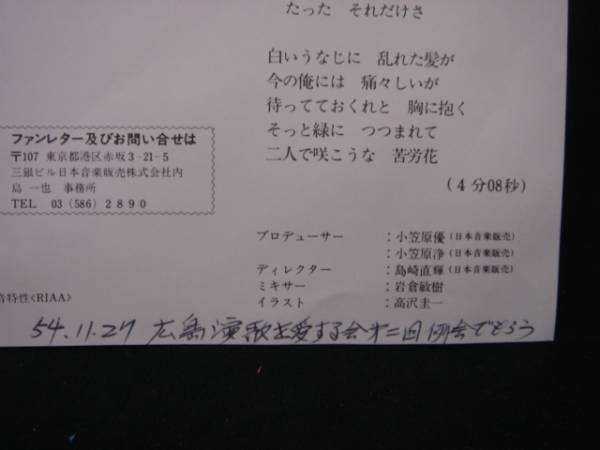 たった それだけさ
白いうなじに 乱れた髪が
今の俺には 痛々しいが
待ってておくれと 胸に抱く
そっと緑に つつまれて
二人で咲こうな 苦労花
(4分08秒)
ファンレター及びお問い合せは
〒107 東京都港区赤坂3-21-5
三銀ビル日本音楽販売株式会社内
島 一也 事務所
TEL 03(586)2890
プロデューサー :小笠原優(日本音楽販売)
:小笠原浄(日本音楽販売)
ディレクター :島崎直輝(日本音楽販売)
ミキサー :岩倉敏樹
イラスト :高沢圭一
音特性<RIAA>
54.11.27 広島演歌を愛する会オ二回例会でもらう